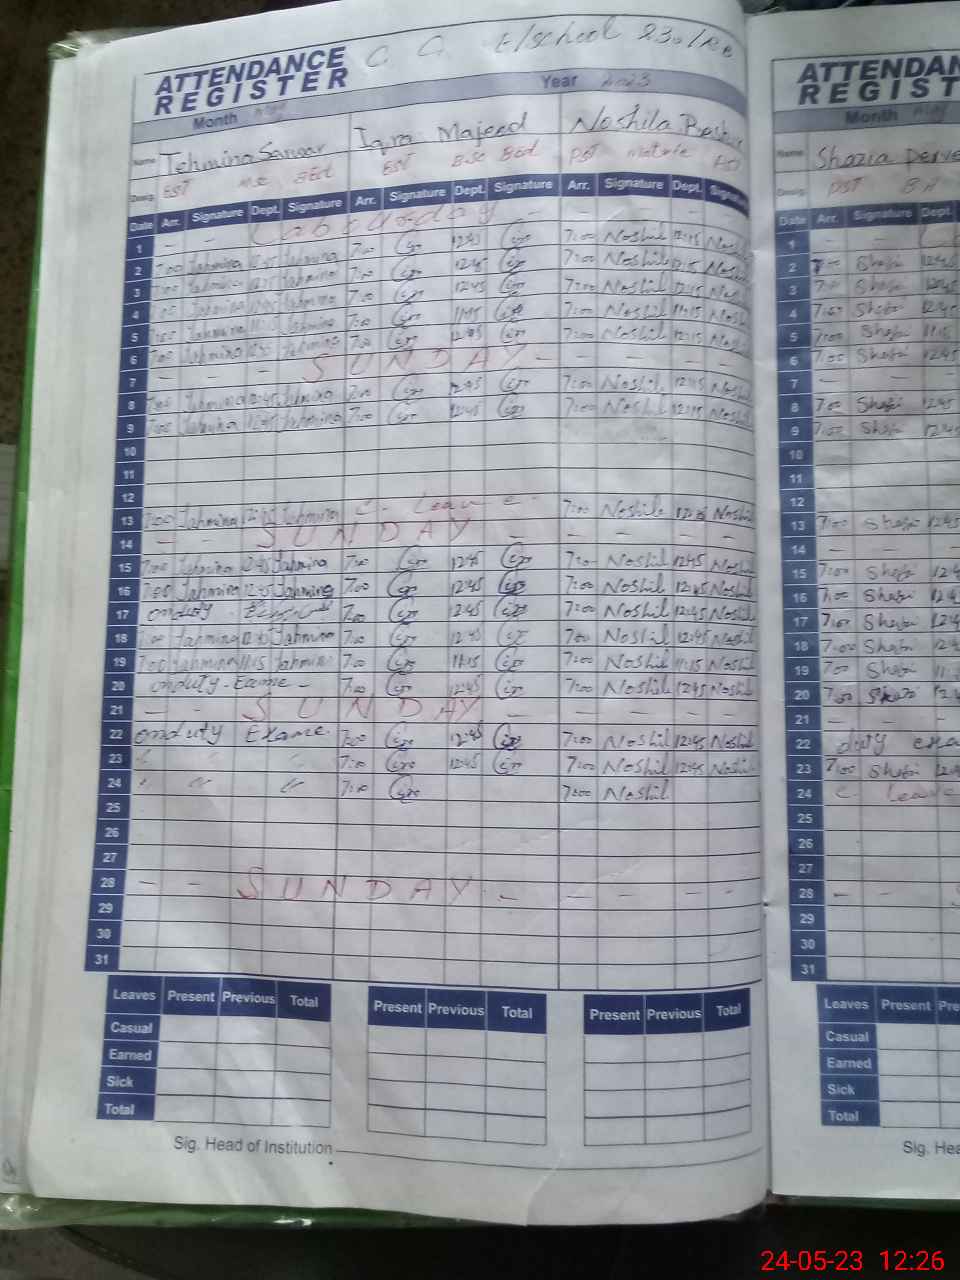 ATTENDANCE REGISTER G. G. E/School 230/RB
Month May Year 2023
Name Tehmina Sarwar Iqra Majeed Noshila Bashir
Desig. EST MSc BEd EST BSc BEd PST Matric PTC
Date Arr. Signature Dept. Signature Arr. Signature Dept. Signature Arr. Signature Dept. Signature
1 — — Labour day — — — —
2 7:00 Tahmina 12:45 Tahmina 7:00 12:45 7:00 Noshil 12:15 Noshil
3 7:00 Tahmina 12:45 Tahmina 7:00 12:45 7:00 Noshil 12:15 Noshil
4 7:00 Tahmina 12:45 Tahmina 7:00 12:45 7:00 Noshil 12:15 Noshil
5 7:00 Tahmina 11:15 Tahmina 7:00 11:15 7:00 Noshil 11:15 Noshil
6 7:00 Tahmina 12:45 Tahmina 7:00 12:45 7:00 Noshil 12:15 Noshil
7 — — — SUNDAY — — — — —
8 7:00 Tahmina 12:45 Tahmina 7:00 12:45 7:00 Noshil 12:15 Noshil
9 7:00 Tahmina 12:45 Tahmina 7:00 12:45 7:00 Noshil 12:15 Noshil
10
11
12
13 7:00 Tahmina 12:45 Tahmina C. Leave 7:00 Noshil 12:45 Noshil
14 — — SUNDAY — — — — —
15 7:00 Tahmina 12:45 Tahmina 7:00 12:45 7:00 Noshil 12:45 Noshil
16 7:00 Tahmina 12:45 Tahmina 7:00 12:45 7:00 Noshil 12:45 Noshil
17 onduty 7:00 12:45 7:00 Noshil 12:45 Noshil
18 7:00 Tahmina 12:45 Tahmina 7:00 12:45 7:00 Noshil 12:45 Noshil
19 7:00 Tahmina 11:15 Tahmina 7:00 11:15 7:00 Noshil 11:15 Noshil
20 onduty - Exame - 7:00 12:45 7:00 Noshil 12:45 Noshil
21 — — SUNDAY — — — — —
22 onduty Exame 7:00 12:45 7:00 Noshil 12:45 Noshil
23 7:00 12:45 7:00 Noshil 12:45 Noshil
24 " " " 7:00 7:00 Noshil
25
26
27
28 — — SUNDAY — — — — —
29
30
31
Leaves Present Previous Total Present Previous Total Present Previous Total
Casual
Earned
Sick
Total
Sig. Head of Institution
ATTENDAN
REGIST
Month May
Name Shazia Perve
Desig. PST B.A
Date Arr. Signature Dept.
1 — —
2 7:00 Shazi 12:45
3 7:00 Shazi 12:45
4 7:00 Shazi 12:45
5 7:00 Shazi 11:15
6 7:00 Shazi 12:45
7 — —
8 7:00 Shazi 12:45
9 7:00 Shazi 12:45
10
11
12
13 7:00 Shazi 12:45
14 — — —
15 7:00 Shazi 12:4
16 7:00 Shazi 12:4
17 7:00 Shazi 12:4
18 7:00 Shazi 12:4
19 7:00 Shazi 11:
20 7:00 Shazi 12:
21 — — —
22 duty exa
23 7:00 Shazi 12:4
24 C. Leave
25
26
27
28 — —
29
30
31
Leaves Present Pre
Casual
Earned
Sick
Total
Sig. Hea
24-05-23 12:26